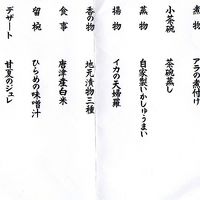 煮物 アラの煮付け
小茶碗 茶碗蒸し
蒸物 自家製いかしゅうまい
揚物 イカの天婦羅
香の物 地元漬物三種
食事 唐津産白米
留椀 ひらめの味噌汁
デザート 甘夏のジュレ